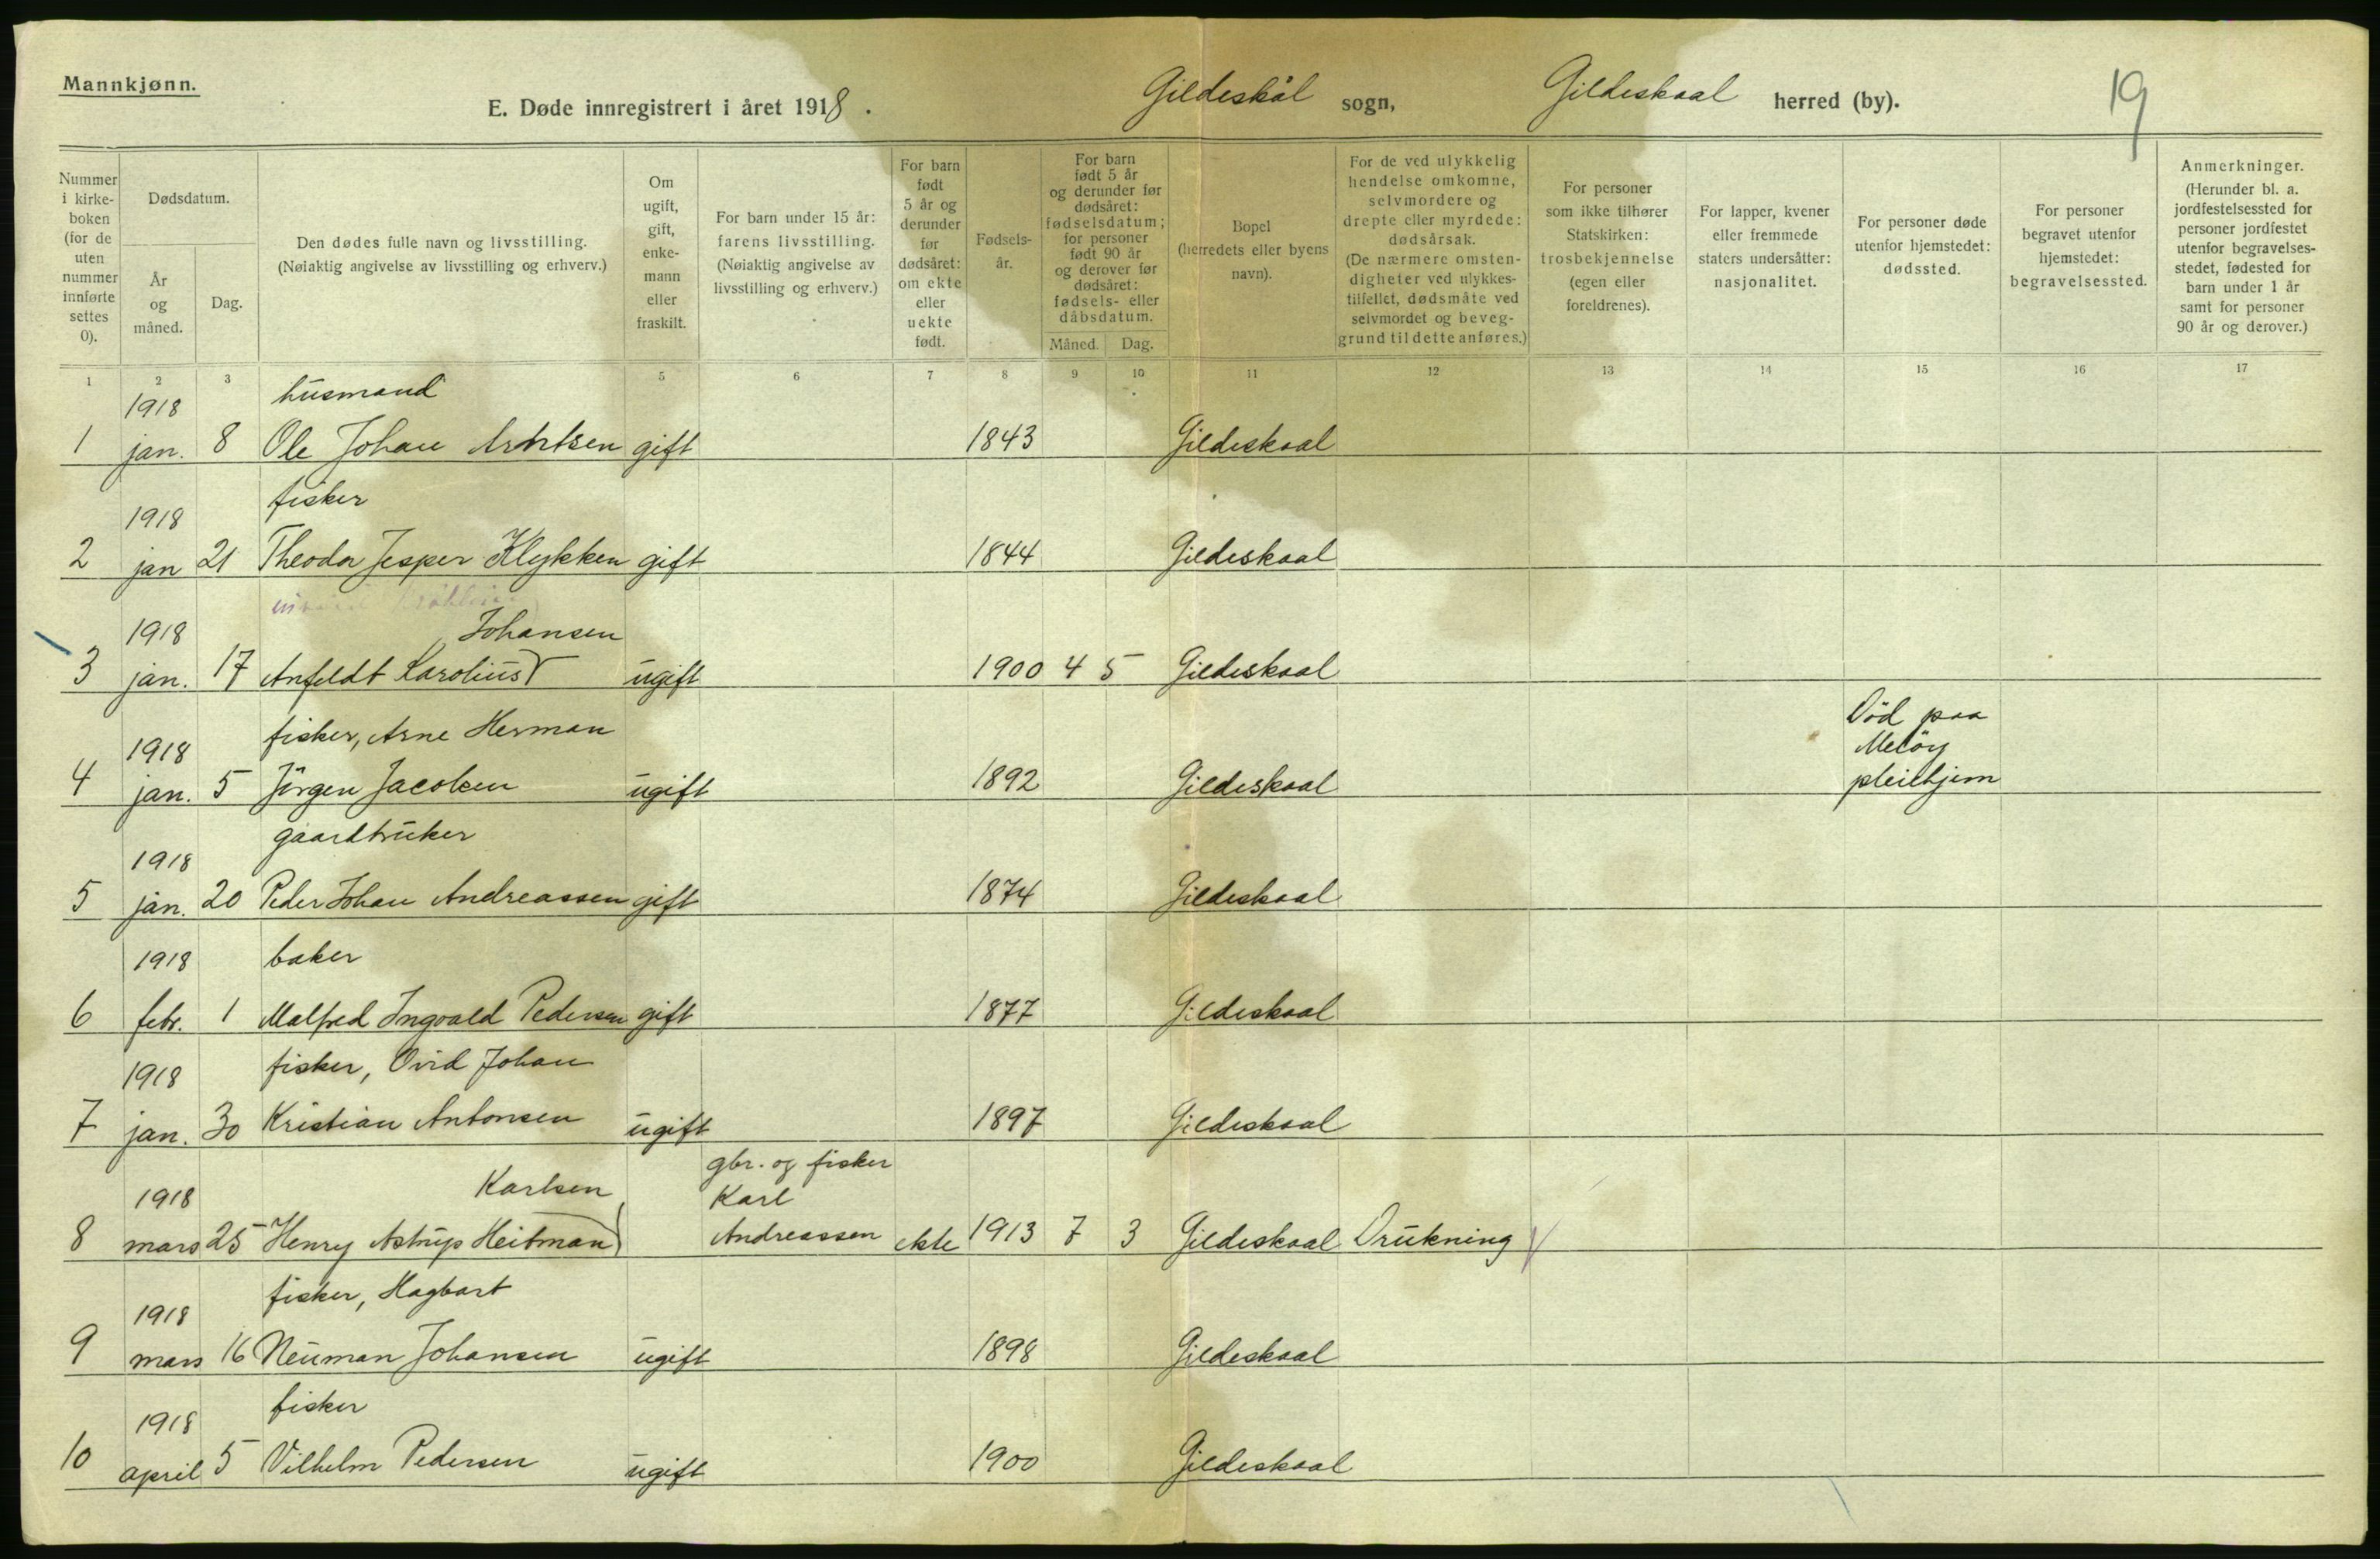 Mannkjønn.
E. Døde innregistrert i året 1918. Gildeskål sogn, Gildeskaal herred (by). 19
Nummer i kirke-boken (for de uten nummer innførte settes 0).
Dødsdatum.
År og måned.
Dag.
Den dødes fulle navn og livsstilling.
(Nøiaktig angivelse av livsstilling og erhverv.)
Om ugift, gift, enke-mann eller fraskilt.
For barn under 15 år: farens livsstilling. (Nøiaktig angivelse av livsstilling og erhverv.)
For barn født 5 år og derunder før dødsåret: om ekte eller uekte født.
Fødsels-år.
For barn født 5 år og derunder før dødsåret: fødselsdatum; for personer født 90 år og derover før dødsåret: fødsels- eller dåbsdatum.
Måned. Dag.
Bopel (herredets eller byens navn).
For de ved ulykkelig hendelse omkomne, selvmordere og drepte eller myrdede: dødsårsak. (De nærmere omsten-digheter ved ulykkes-tilfellet, dødsmåte ved selvmordet og beveg-grund til dette anføres.)
For personer som ikke tilhører Statskirken: trosbekjennelse (egen eller foreldrenes).
For lapper, kvener eller fremmede staters undersåtter: nasjonalitet.
For personer døde utenfor hjemstedet: dødssted.
For personer begravet utenfor hjemstedet: begravelsessted.
Anmerkninger. (Herunder bl. a. jordfestelsessted for personer jordfestet utenfor begravelses-stedet, fødested for barn under 1 år samt for personer 90 år og derover.)
1 2 3 5 6 7 8 9 10 11 12 13 14 15 16 17
1918 husmand
1 jan. 8 Ole Johan Arntsen gift 1843 Gildeskaal
1918 fisker
2 jan 21 Theodor Jesper Klykken gift 1844 Gildeskaal
1918 Johansen
3 jan. 17 Anfeldt Karolius ugift 1900 4 5 Gildeskaal
1918 fisker, Arne Herman Död paa Melöy
4 jan. 5 Jörgen Jacobsen ugift 1892 Gildeskaal pleiehjem
1918 gaardbruker
5 jan. 20 Peder Johan Andreassen gift 1874 Gildeskaal
1918 baker
6 febr. 1 Malfred Ingvald Pedersen gift 1877 Gildeskaal
1918 fisker, Ovid Johan
7 jan. 30 Kristian Antonsen ugift 1897 Gildeskaal
1918 Karlsen gbr. og fisker Karl
8 mars 25 Henry Astrup Heitman Andreassen ekte 1913 7 3 Gildeskaal Drukning
1918 fisker, Hagbart
9 mars 16 Neuman Johansen ugift 1898 Gildeskaal
1918 fisker
10 april 5 Vilhelm Pedersen ugift 1900 Gildeskaal